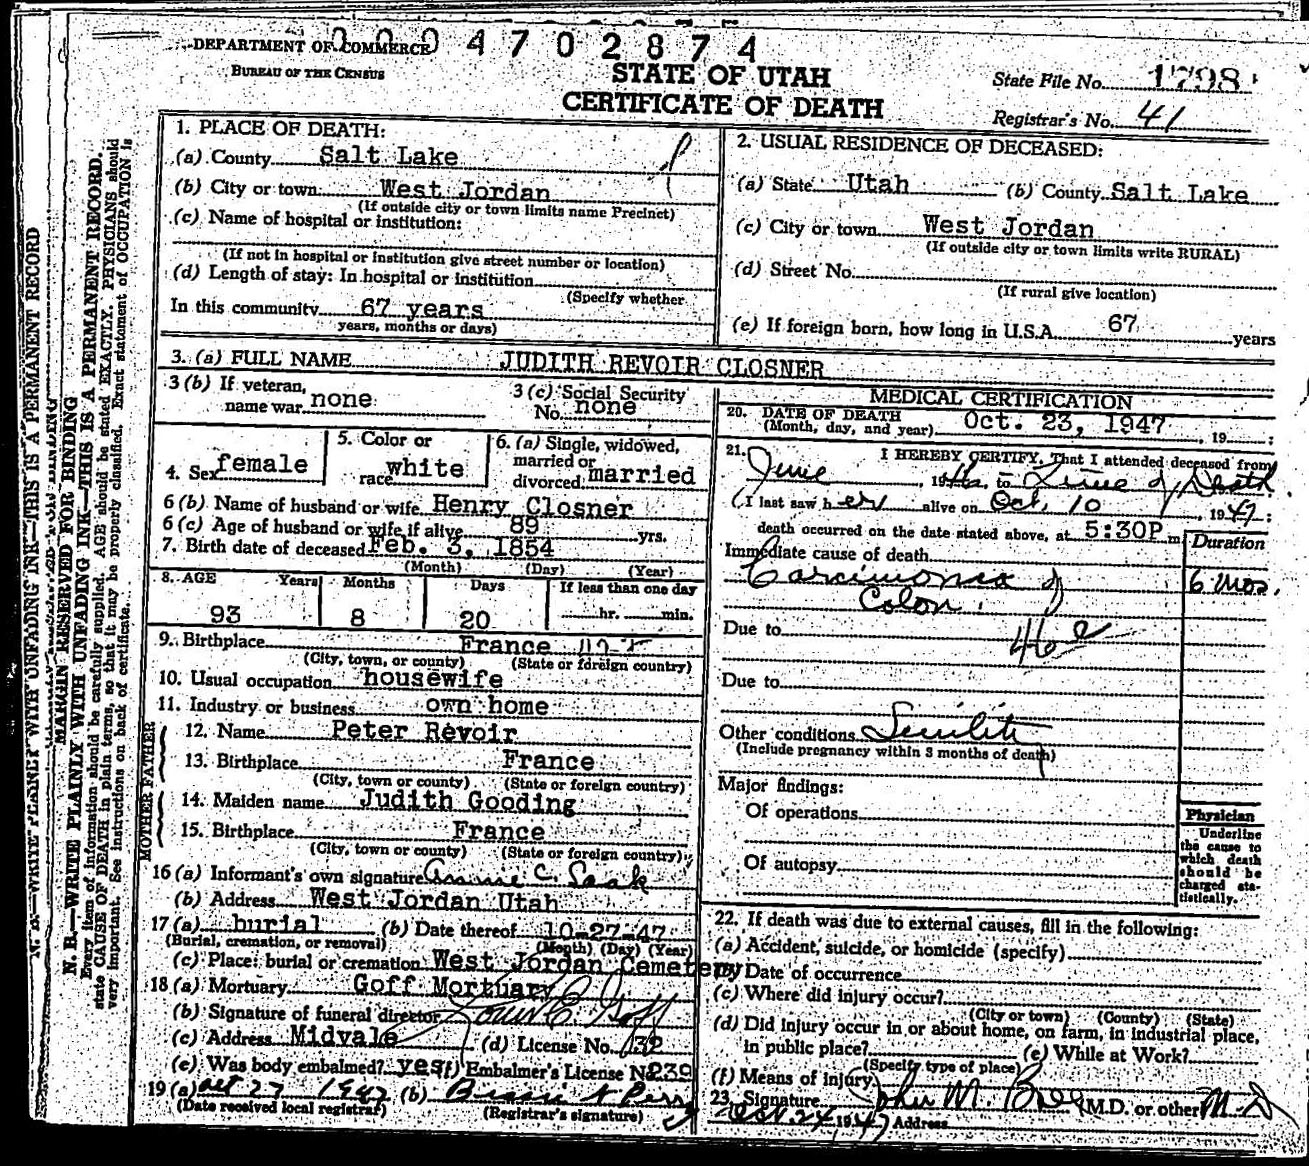 0004702874
DEPARTMENT OF COMMERCE
BUREAU OF THE CENSUS
STATE OF UTAH
CERTIFICATE OF DEATH
State File No. 1798
Registrar's No. 41
N. B.—WRITE PLAINLY WITH UNFADING INK—THIS IS A PERMANENT RECORD
MARGIN RESERVED FOR BINDING
N. B.—WRITE PLAINLY WITH UNFADING INK—THIS IS A PERMANENT RECORD.
Every item of information should be carefully supplied. AGE should be stated EXACTLY. PHYSICIANS should
state CAUSE OF DEATH in plain terms, so that it may be properly classified. Exact statement of OCCUPATION is
very important. See instructions on back of certificate.
1. PLACE OF DEATH:
(a) County Salt Lake
(b) City or town West Jordan
(If outside city or town limits name Precinct)
(c) Name of hospital or institution:
(If not in hospital or institution give street number or location)
(d) Length of stay: In hospital or institution
(Specify whether
In this community 67 years
years, months or days)
2. USUAL RESIDENCE OF DECEASED:
(a) State Utah (b) County Salt Lake
(c) City or town West Jordan
(If outside city or town limits write RURAL)
(d) Street No.
(If rural give location)
(e) If foreign born, how long in U.S.A. 67 years
3. (a) FULL NAME JUDITH REVOIR CLOSNER
3 (b) If veteran, name war none
3 (c) Social Security No. none
4. Sex female
5. Color or race white
6. (a) Single, widowed, married or divorced: married
6 (b) Name of husband or wife Henry Closner
6 (c) Age of husband or wife if alive 89 yrs.
7. Birth date of deceased Feb. 3, 1854
(Month) (Day) (Year)
8. AGE Years Months Days If less than one day
93 8 20 hr. min.
9. Birthplace France
(City, town, or county) (State or foreign country)
10. Usual occupation housewife
11. Industry or business own home
FATHER
12. Name Peter Revoir
13. Birthplace France
(City, town or county) (State or foreign country)
MOTHER
14. Maiden name Judith Gooding
15. Birthplace France
(City, town or county) (State or foreign country)
16 (a) Informant's own signature Annie C. Saak
(b) Address West Jordan Utah
17 (a) burial (b) Date thereof 10-27-47
(Burial, cremation, or removal) (Month) (Day) (Year)
(c) Place: burial or cremation West Jordan Cemetery
18 (a) Mortuary Goff Mortuary
(b) Signature of funeral director Goff
(c) Address Midvale (d) License No. 132
(e) Was body embalmed? yes (f) Embalmer's License No. 239
19 (a) Oct 27 1947 (b)
(Date received local registrar) (Registrar's signature)
MEDICAL CERTIFICATION
20. DATE OF DEATH
(Month, day, and year) Oct. 23, 1947, 19 ;
21. I HEREBY CERTIFY, That I attended deceased from
June, 1946, to Time of Death
I last saw her alive on Oct, 10 1947;
death occurred on the date stated above, at 5:30P m
Duration
Immediate cause of death
Carcinoma of 6 mos.
Colon.
Due to 46e
Due to
Other conditions Senility
(Include pregnancy within 3 months of death)
Major findings:
Of operations
Of autopsy
Physician
Underline
the cause to
which death
should be
charged sta-
tistically.
22. If death was due to external causes, fill in the following:
(a) Accident, suicide, or homicide (specify)
(b) Date of occurrence
(c) Where did injury occur?
(City or town) (County) (State)
(d) Did injury occur in or about home, on farm, in industrial place,
in public place? (e) While at Work?
(Specify type of place)
(f) Means of injury
23. Signature John M. (M.D. or other) M.D
Oct. 24 1947 Address